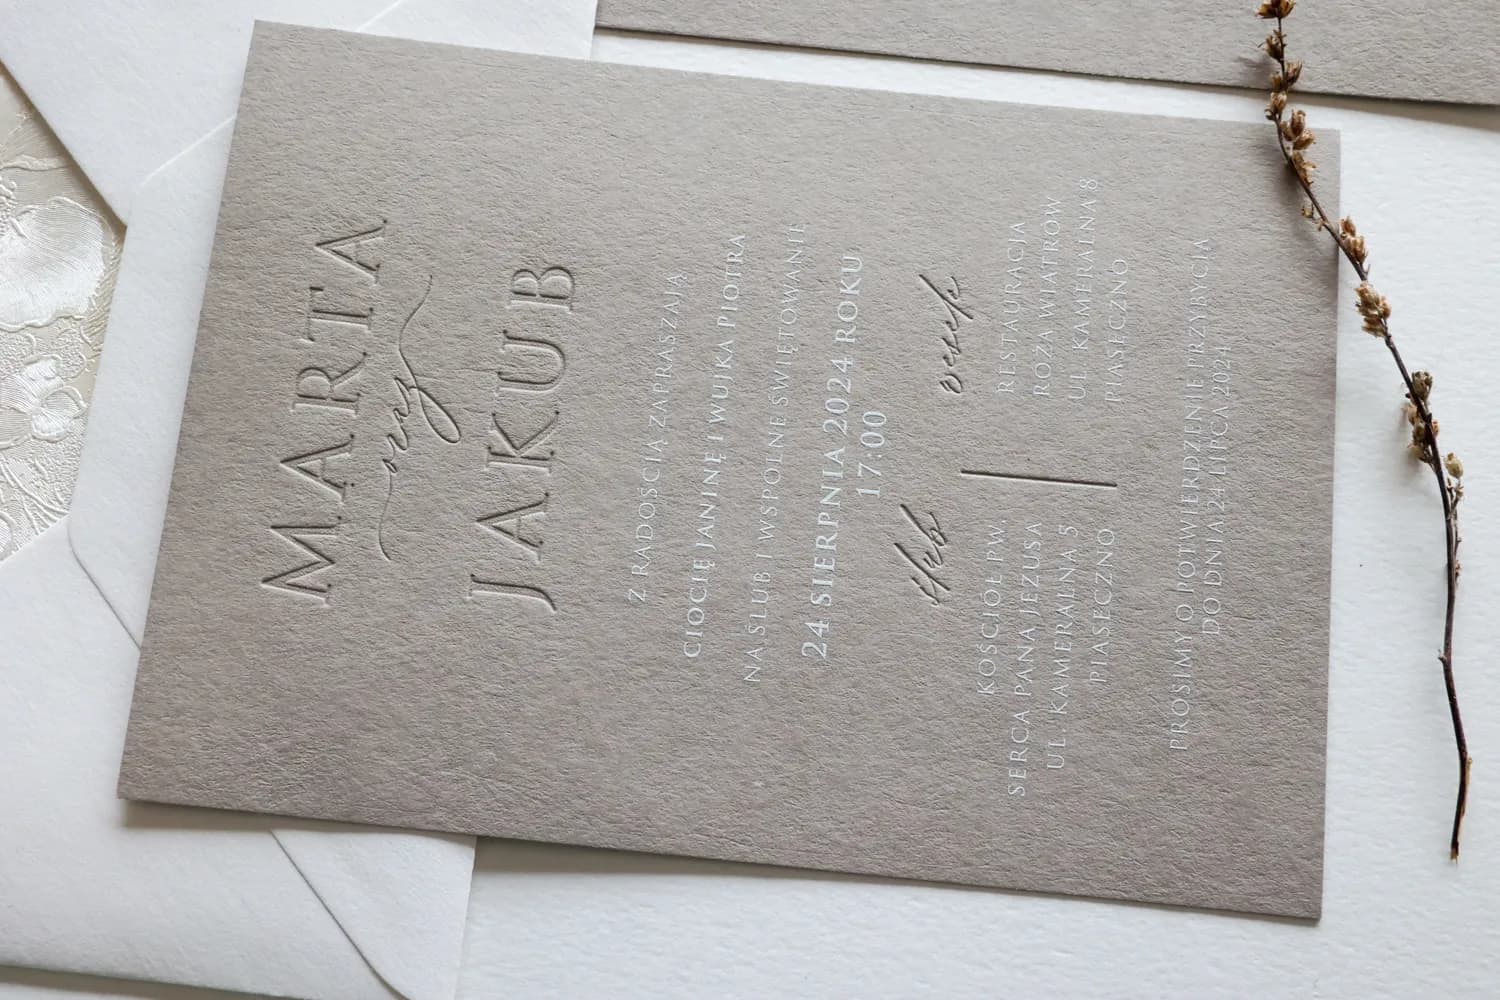 MARTA
oraz
JAKUB
Z RADOŚCIĄ ZAPRASZAJĄ
CIOCIĘ JANINĘ I WUJKA PIOTRA
NA ŚLUB I WSPÓLNE ŚWIĘTOWANIE
24 SIERPNIA 2024 ROKU
17:00
ślub
KOŚCIÓŁ PW.
SERCA PANA JEZUSA
UL. KAMERALNA 5
PIASECZNO
wesele
RESTAURACJA
RÓŻA WIATRÓW
UL. KAMERALNA 8
PIASECZNO
PROSIMY O POTWIERDZENIE PRZYBYCIA
DO DNIA 24 LIPCA 2024